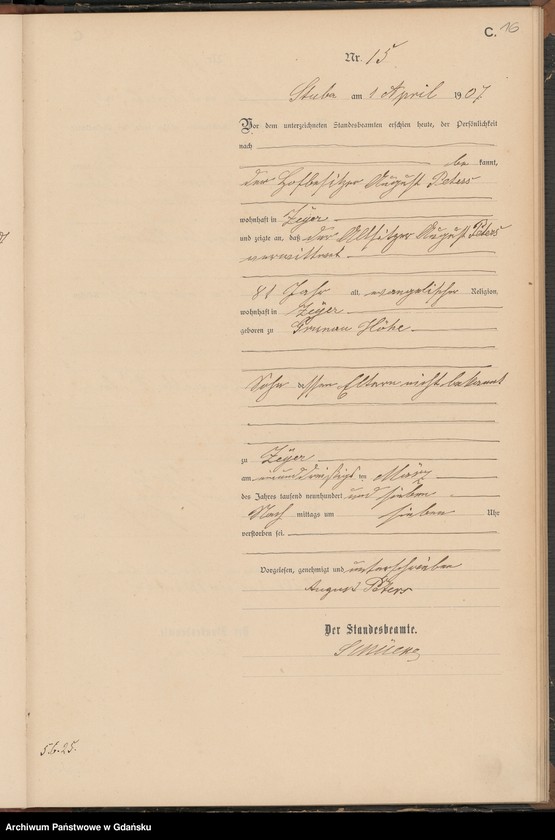 C. 16
Nr. 15
Stuba am 1 April 1907
Vor dem unterzeichneten Standesbeamten erschien heute, der Persönlichkeit
nach
be kannt,
der Hofbesitzer August Peters
wohnhaft in Zeyer
und zeigte an, daß der Altsitzer August Peters
verwittwet
81 Jahr alt, evangelischer Religion,
wohnhaft in Zeyer
geboren zu Grunau Höhe
Sohn dessen Eltern nicht bekannt
zu Zeyer
am einunddreißigs ten März
des Jahres tausend neunhundert und sieben
Nach mittags um sieben Uhr
verstorben sei.
Vorgelesen, genehmigt und unterschrieben
August Peters
Der Standesbeamte.
5.6.25.
Archiwum Państwowe w Gdańsku